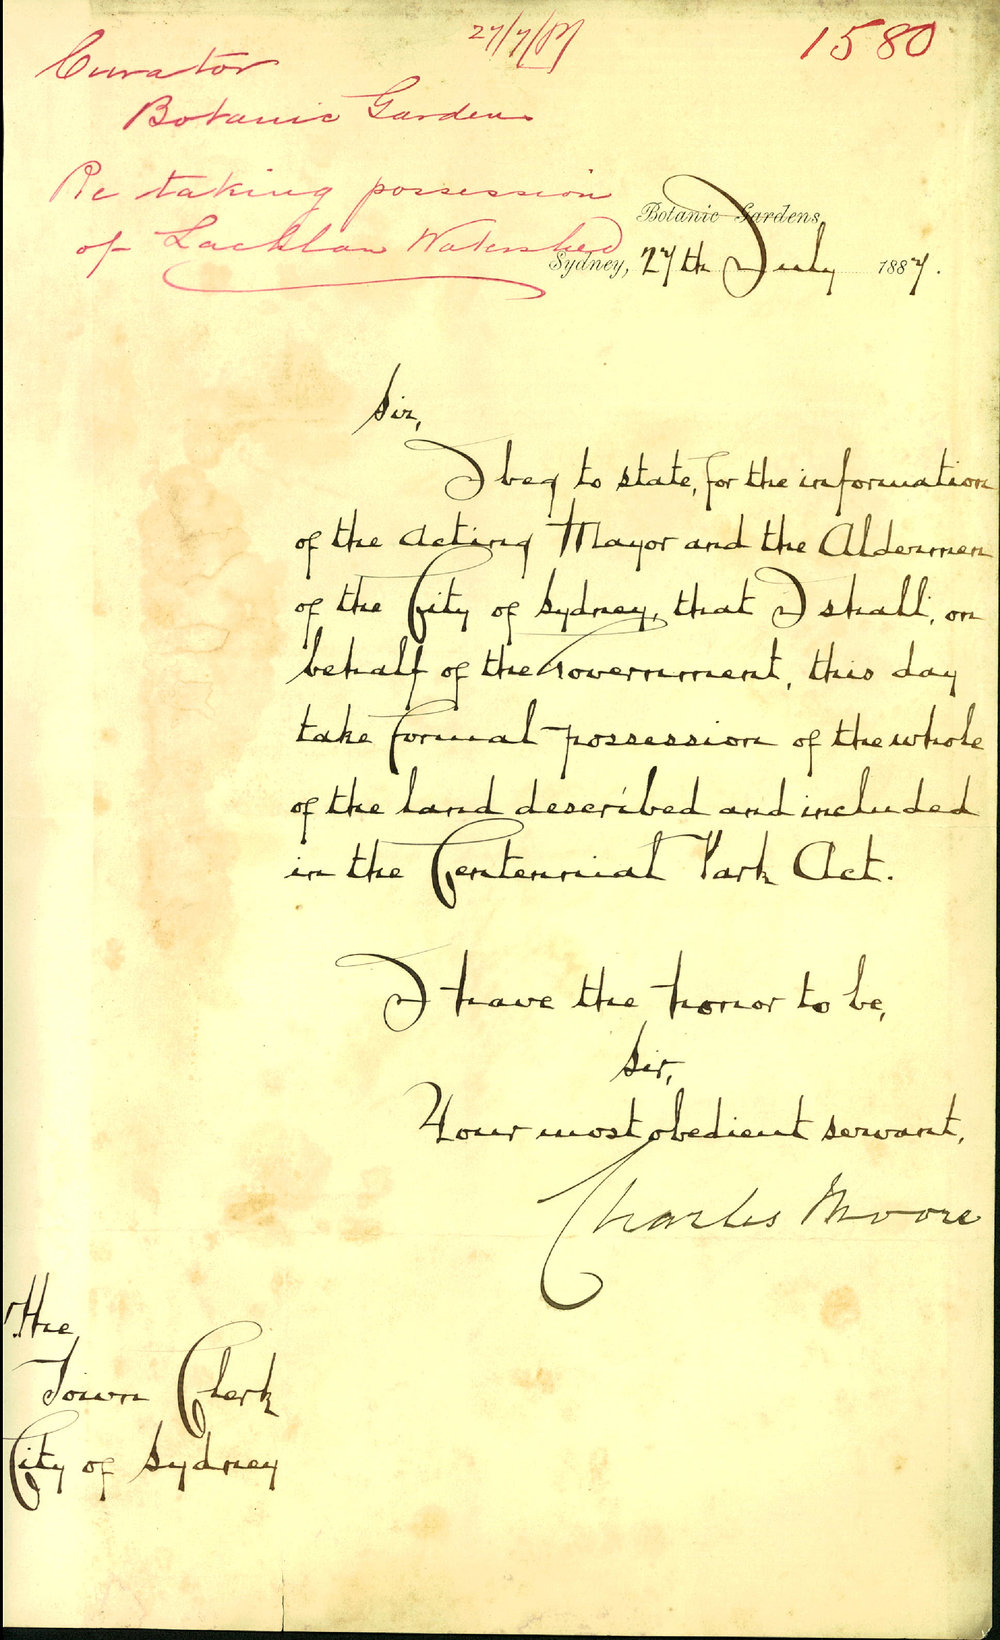 27/7/87
1580
Curator
Botanic Gardens
Re taking possession
of Lachlan Watershed
Botanic Gardens,
Sydney, 27th July 1887.
Sir,
I beg to state, for the information
of the Acting Mayor and the Aldermen
of the City of Sydney, that I shall, on
behalf of the Government, this day
take formal possession of the whole
of the land described and included
in the Centennial Park Act.
I have the honor to be,
Sir,
Your most obedient servant,
Charles Moore
The
Town Clerk
City of Sydney